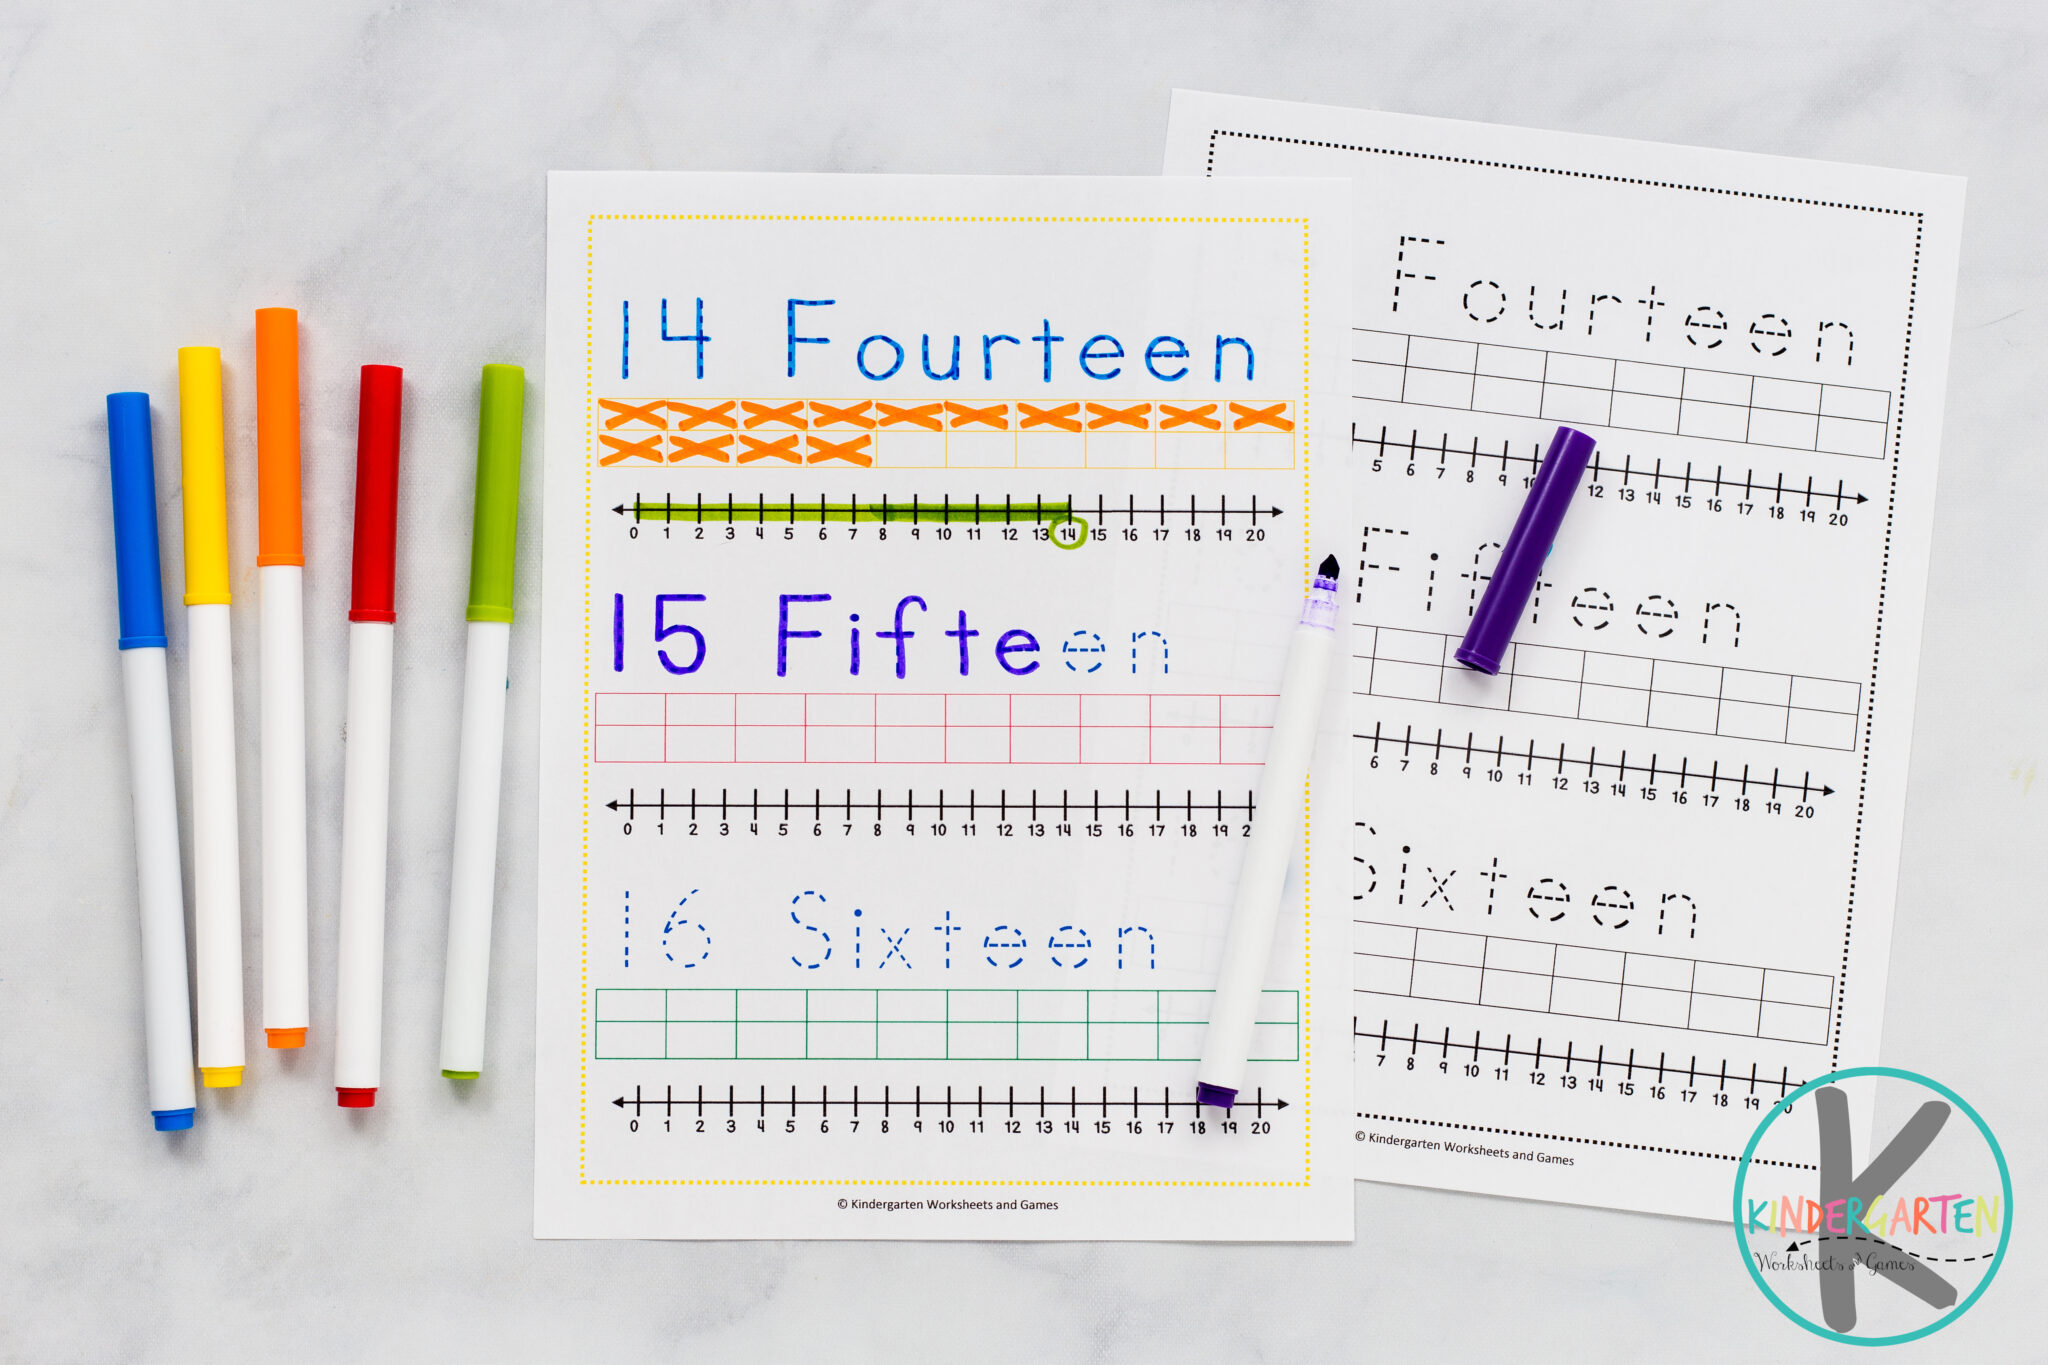 14 Fourteen
0 1 2 3 4 5 6 7 8 9 10 11 12 13 14 15 16 17 18 19 20
15 Fifteen
0 1 2 3 4 5 6 7 8 9 10 11 12 13 14 15 16 17 18 19
16 Sixteen
0 1 2 3 4 5 6 7 8 9 10 11 12 13 14 15 16 17 18 19 20
© Kindergarten Worksheets and Games
Fourteen
5 6 7 8 9 10 12 13 14 15 16 17 18 19 20
Fifteen
6 7 8 9 10 11 12 13 14 15 16 17 18 19 20
Sixteen
7 8 9 10 11 12 13 14 15 16 17 18 19 20
© Kindergarten Worksheets and Games
K
KINDERGARTEN
Worksheets and Games